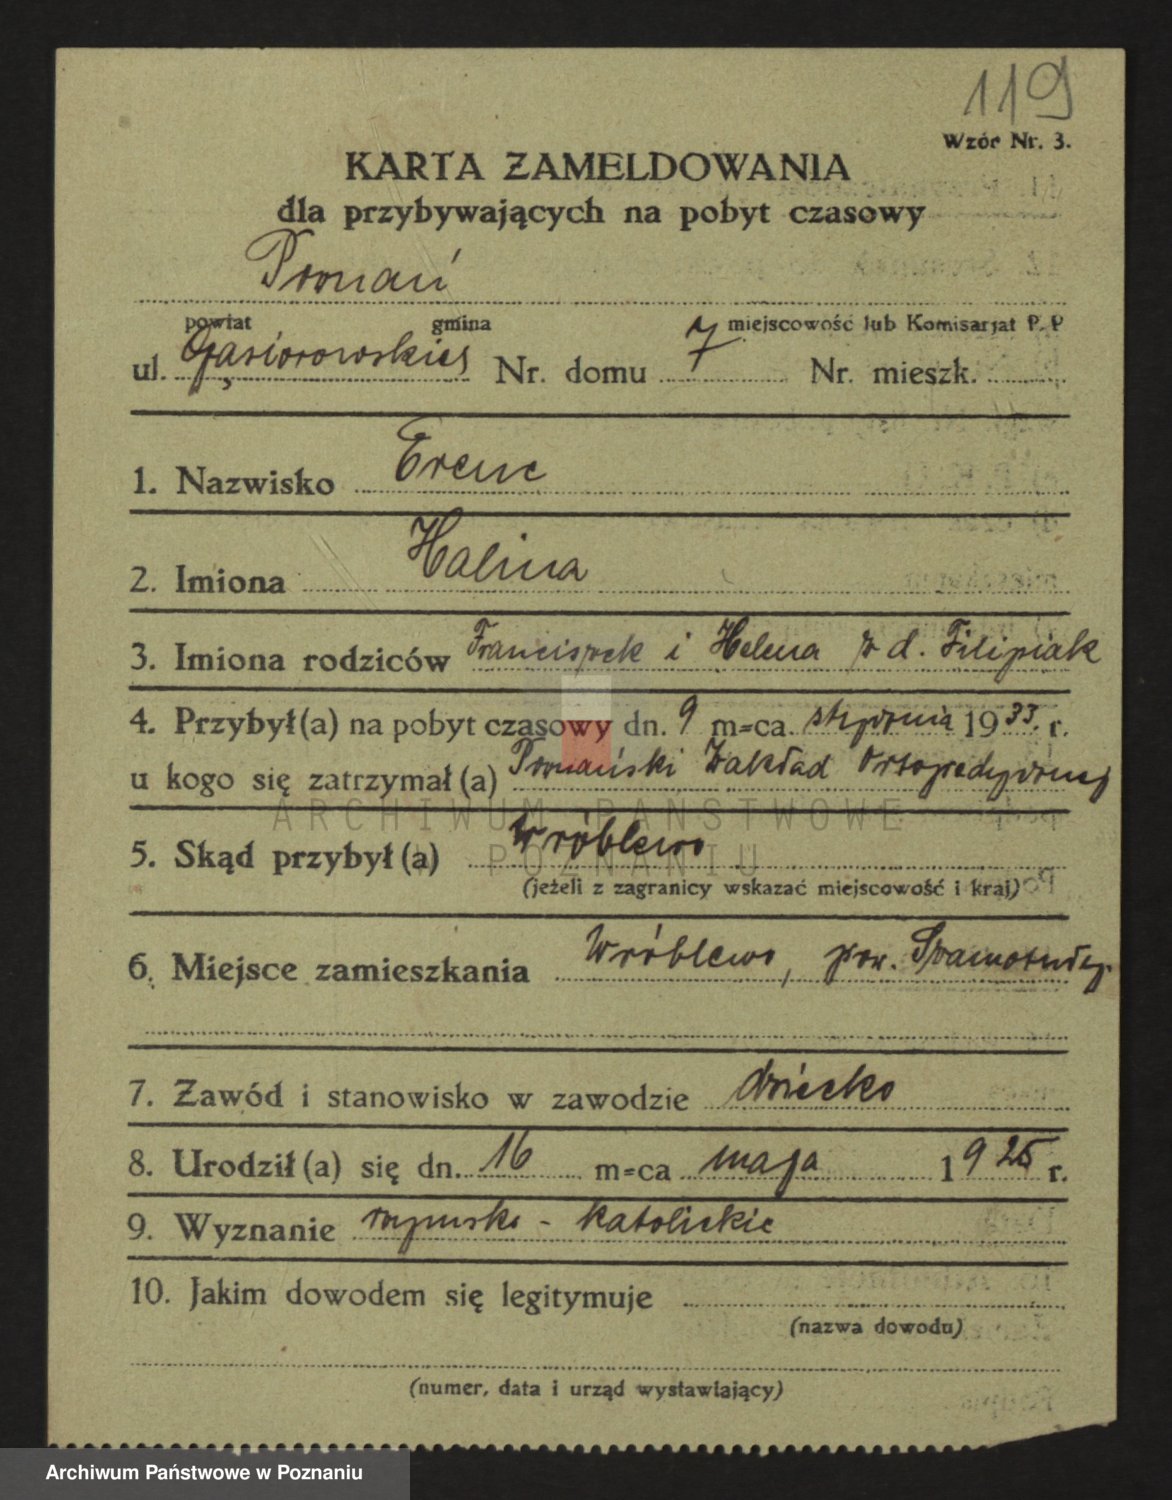 119
Wzór Nr. 3.
KARTA ZAMELDOWANIA
dla przybywających na pobyt czasowy
Poznań
powiat gmina miejscowość lub Komisarjat P. P
ul. Gąsiorowskich Nr. domu 7 Nr. mieszk.
1. Nazwisko Erenc
2. Imiona Halina
3. Imiona rodziców Franciszek i Helena z d. Filipiak
4. Przybył(a) na pobyt czasowy dn. 9 m=ca stycznia 1933. r.
u kogo się zatrzymał(a) Poznański Zakład Ortopedyczny
ARCHIWUM PAŃSTWOWE
POZNANIU
5. Skąd przybył(a) Wróblewo
(jeżeli z zagranicy wskazać miejscowość i kraj)
6. Miejsce zamieszkania Wróblewo, pow. Szamotuły.
7. Zawód i stanowisko w zawodzie dziecko
8. Urodził(a) się dn. 16 m=ca maja 1925 r.
9. Wyznanie rzymsko - katolickie
10. Jakim dowodem się legitymuje
(nazwa dowodu)
(numer, data i urząd wystawiający)
Archiwum Państwowe w Poznaniu